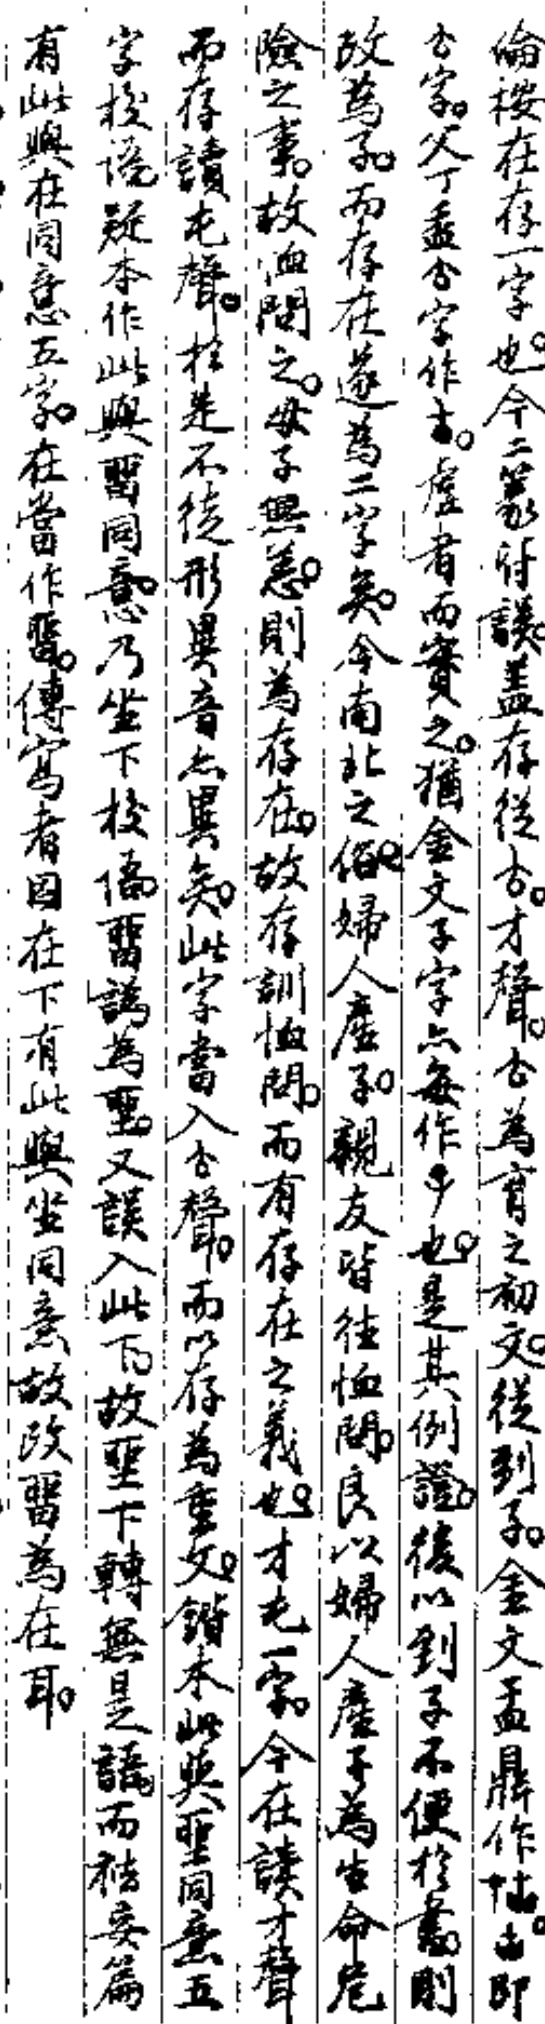 倫按在存一字也。今二篆竝誤。蓋存從𠫓。才聲。𠫓為育之初文。從到子。金文盂鼎作𡉈。由即
𠫓字。父丁盉𠫓字作𠮷。虛者而實之。猶金文子字亦每作𠄏也。是其例證。後以到子不便於書。則
改為子。而存在遂為二字矣。今南北之俗。婦人產子。親友皆往恤問。良以婦人產子為生命危
險之事。故恤問之。母子無恙。則為存在。故存訓恤問。而有存在之義也。才屯一字。今在讀才聲
而存讀屯聲。於是不徒形異音亦異矣。此字當入𠫓聲。而以存為重文。鍇本此與坙同意五
字校語。疑本作此與畱同意。乃坐下校語。畱譌為坙。又誤入此下。故坙下轉無是語。而袪妄篇
有此與在同意五字。在當作畱。傳寫者因在下有此與坐同意故改畱為在耳。